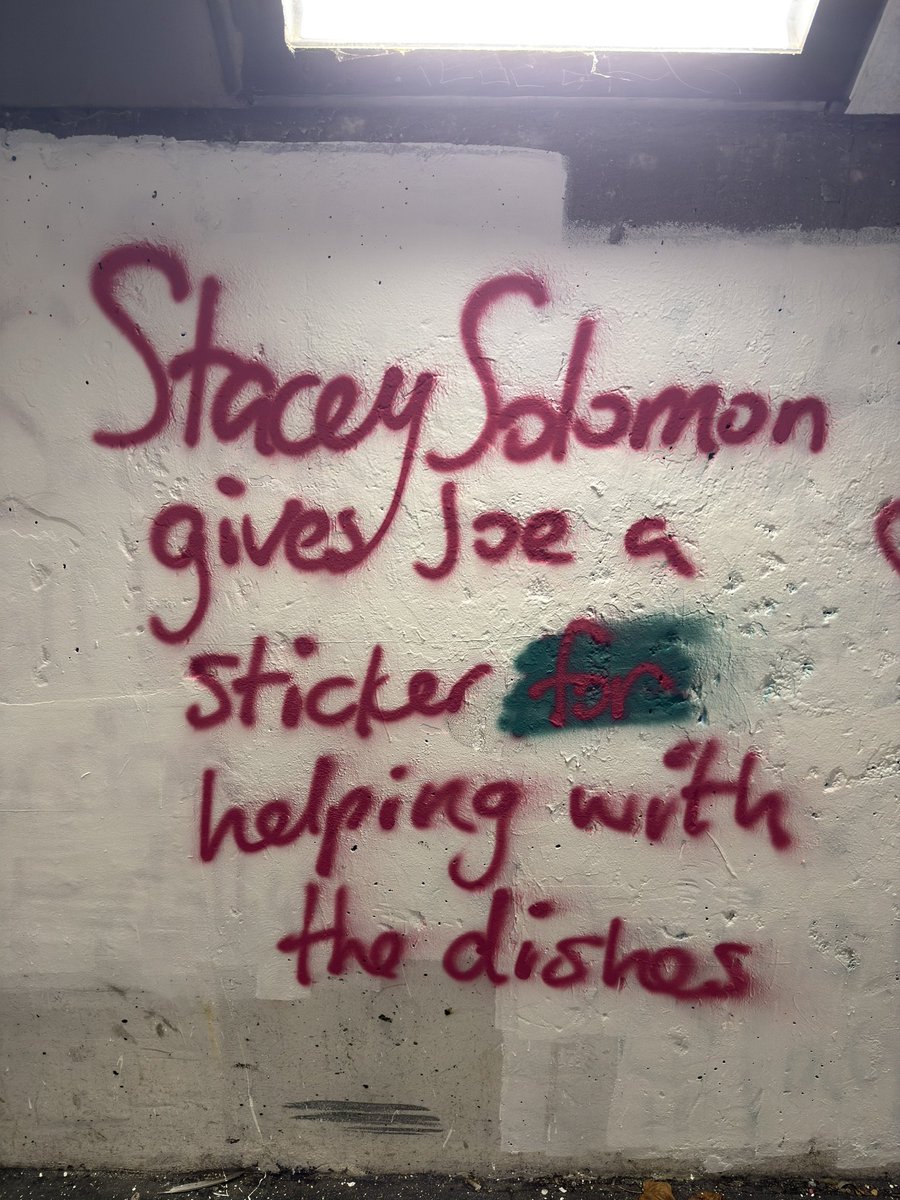 Stacey Solomon
gives Joe a
sticker for
helping with
the dishes